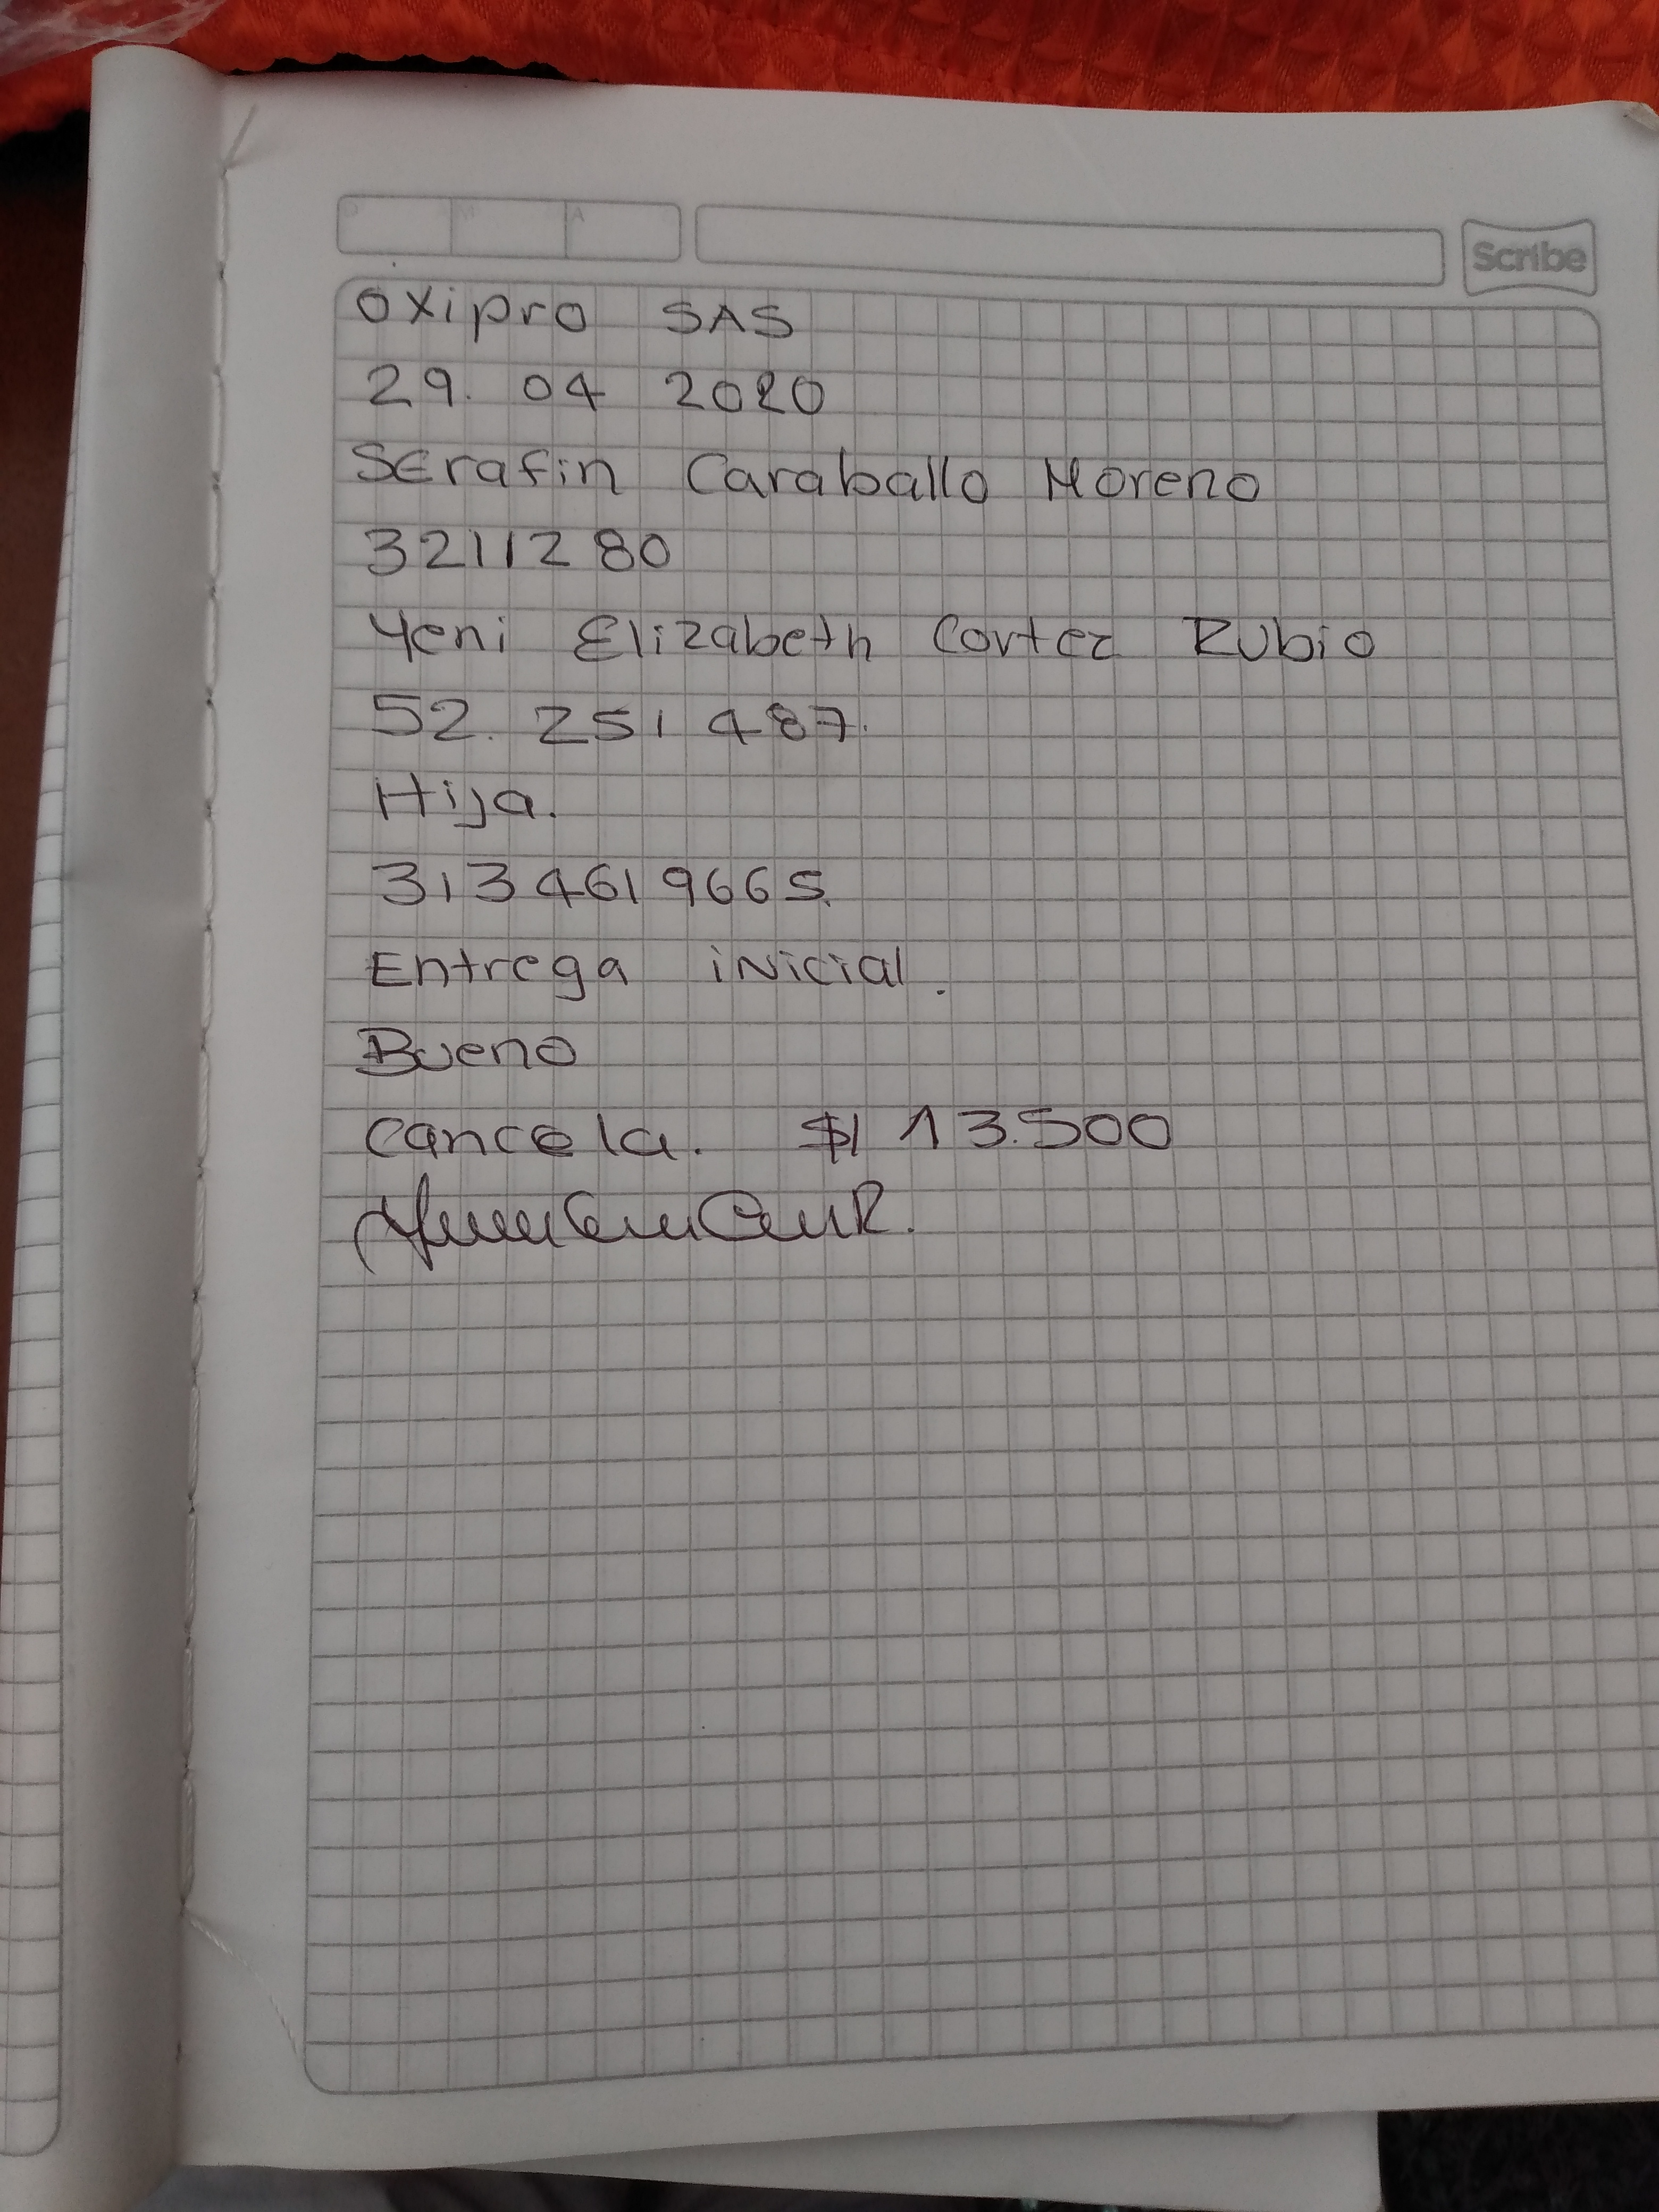 D M A
Scribe
Oxipro SAS
29. 04 2020
Serafin Caraballo Moreno
3211280
Yeni Elizabeth Cortez Rubio
52. 251 487.
Hija.
313 461 9665.
Entrega inicial.
Bueno
Cancela. $ 13.500